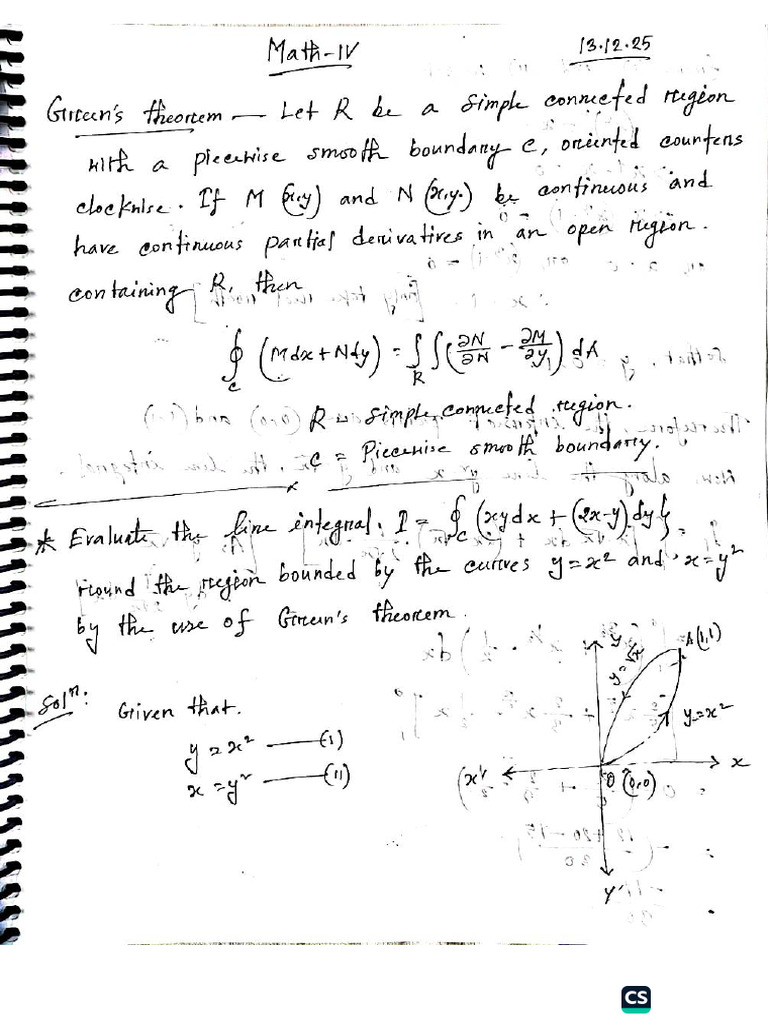 Math-IV 13.12.25
Green's theorem — Let R be a simple connected region
with a piecewise smooth boundary C, oriented counters
clockwise. If M (x,y) and N (x,y.) be continuous and
have continuous partial derivatives in an open region.
containing R, then
∮_C (Mdx+Ndy) = ∫∫_R (∂N/∂N − ∂M/∂y) dA
R = simple connected region.
C = Piecewise smooth boundary.
* Evaluate the line integral. I = ∮_C {xydx + (2x-y) dy}
round the region bounded by the curves y=x² and x=y²
by the use of Green's theorem.
Solⁿ: Given that.
y = x² —— (I)
x = y² —— (II)
y
A(1,1)
y=√x
y=x²
x
x'
O (0,0)
y'
CS